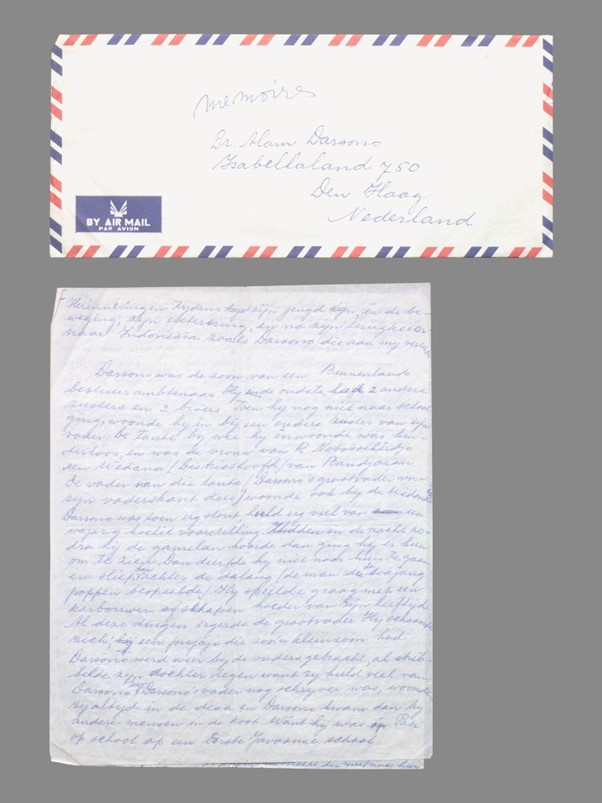 memoires
Dr Alam Darsono
Isabellaland 750
Den Haag
Nederland
BY AIR MAIL
PAR AVION
Herinneringen tijdens zijn jeugd zijn, in de be-
weging, zijn verbanning, en na zijn terugkeer
naar Indonesia zoals Darsono die aan mij
Darsono was de zoon van een Binnenlands
bestuur ambtenaar. Hij was de oudste, had 2 andere
zusters en 2 broers. Toen hij nog niet naar school
ging, woonde hij in bij een oudere zuster van zijn
vader. De tante bij wie hij inwoonde was kin-
derloos, en was de vrouw van R.
een Wedana (districtshoofd) van
De vader van die tante (Darsono's grootvader van
zijn vaderskant dus) woonde ook bij de
Darsono was toen erg stout hield erg veel van een
wajang koelit voorstelling. Midden in de nacht zo-
dra hij de gamelan hoorde dan ging hij er heen
om te zien. Dan durfde hij niet naar huis te gaan
en sliep achter de dalang (de man die de wajang
poppen bespeelde). Hij speelde graag met een
karbouwen of schapen hoeder van zijn leeftijd
Al deze dingen ergerde de grootvader
zich, hij een prijaji die zo'n kleinzoon had
Darsono werd weer bij de ouders gebracht, al
zijn dochter tegen want zij hield veel van
Darsono. Darsono's vader nog schrijver was, woonde
zij altijd in de desa en Darsono kwam dan bij
andere mensen in de kost. Want hij was in
op school op een Eerste Javaanse school